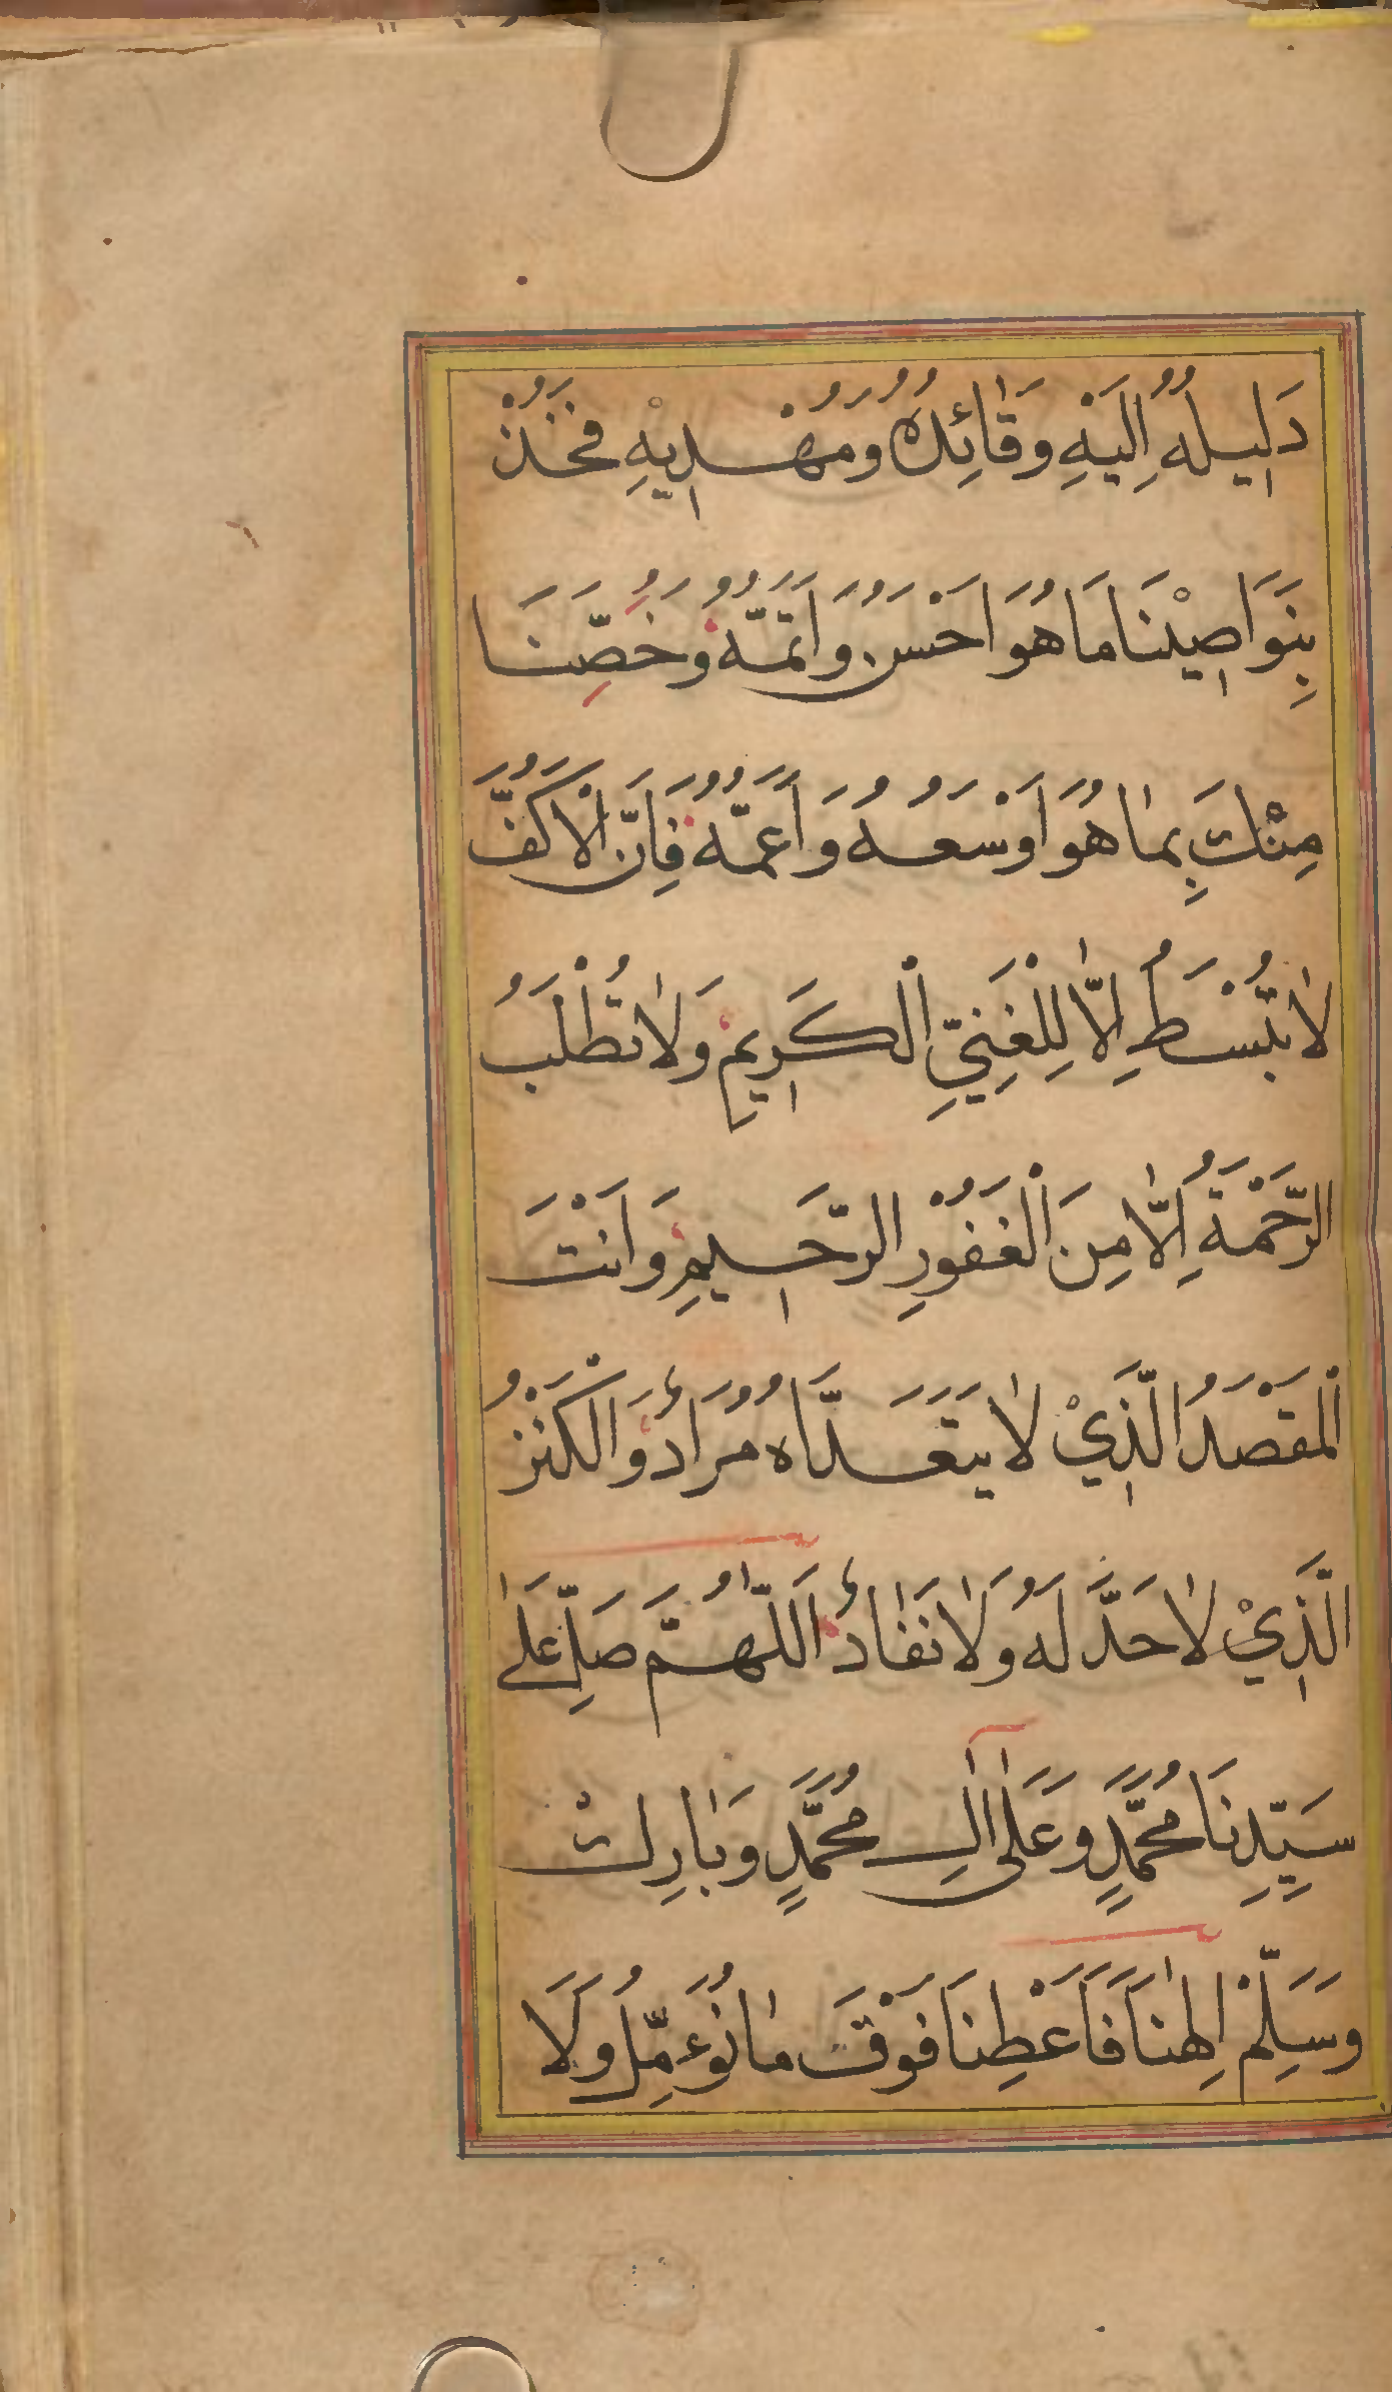 دَلِيلُهُ اِلَيْهِ وَقَائِدُهُ وَمُهْدِيهِ فَخُذْ
بِنَوَاصِيْنَا مَا هُوَ اَحْسَنُ وَاَتَمُّهُ وَخُصَّنَا
مِنْكَ بِمَا هُوَ اَوْسَعُهُ وَاَعَمُّهُ فَاِنَّ الْاَكُفَّ
لَا تُبْسَطُ اِلَّا لِلْغَنِيِّ الْكَرِيمِ وَلَا تُطْلَبُ
الرَّحْمَةُ اِلَّا مِنَ الْغَفُوْرِ الرَّحِيمِ وَاَنْتَ
الْمَقْصَدُ الَّذِيْ لَا يَتَعَدَّاهُ مُرَادٌ وَالْكَنْزُ
الَّذِيْ لَا حَدَّ لَهُ وَلَا نَفَادٌ اَللّٰهُمَّ صَلِّ عَلَى
سَيِّدِنَا مُحَمَّدٍ وَعَلَى اٰلِ مُحَمَّدٍ وَبَارِكْ
وَسَلِّمْ اِلٰهَنَا فَاَعْطِنَا فَوْقَ مَا نُؤَمِّلُ وَلَا